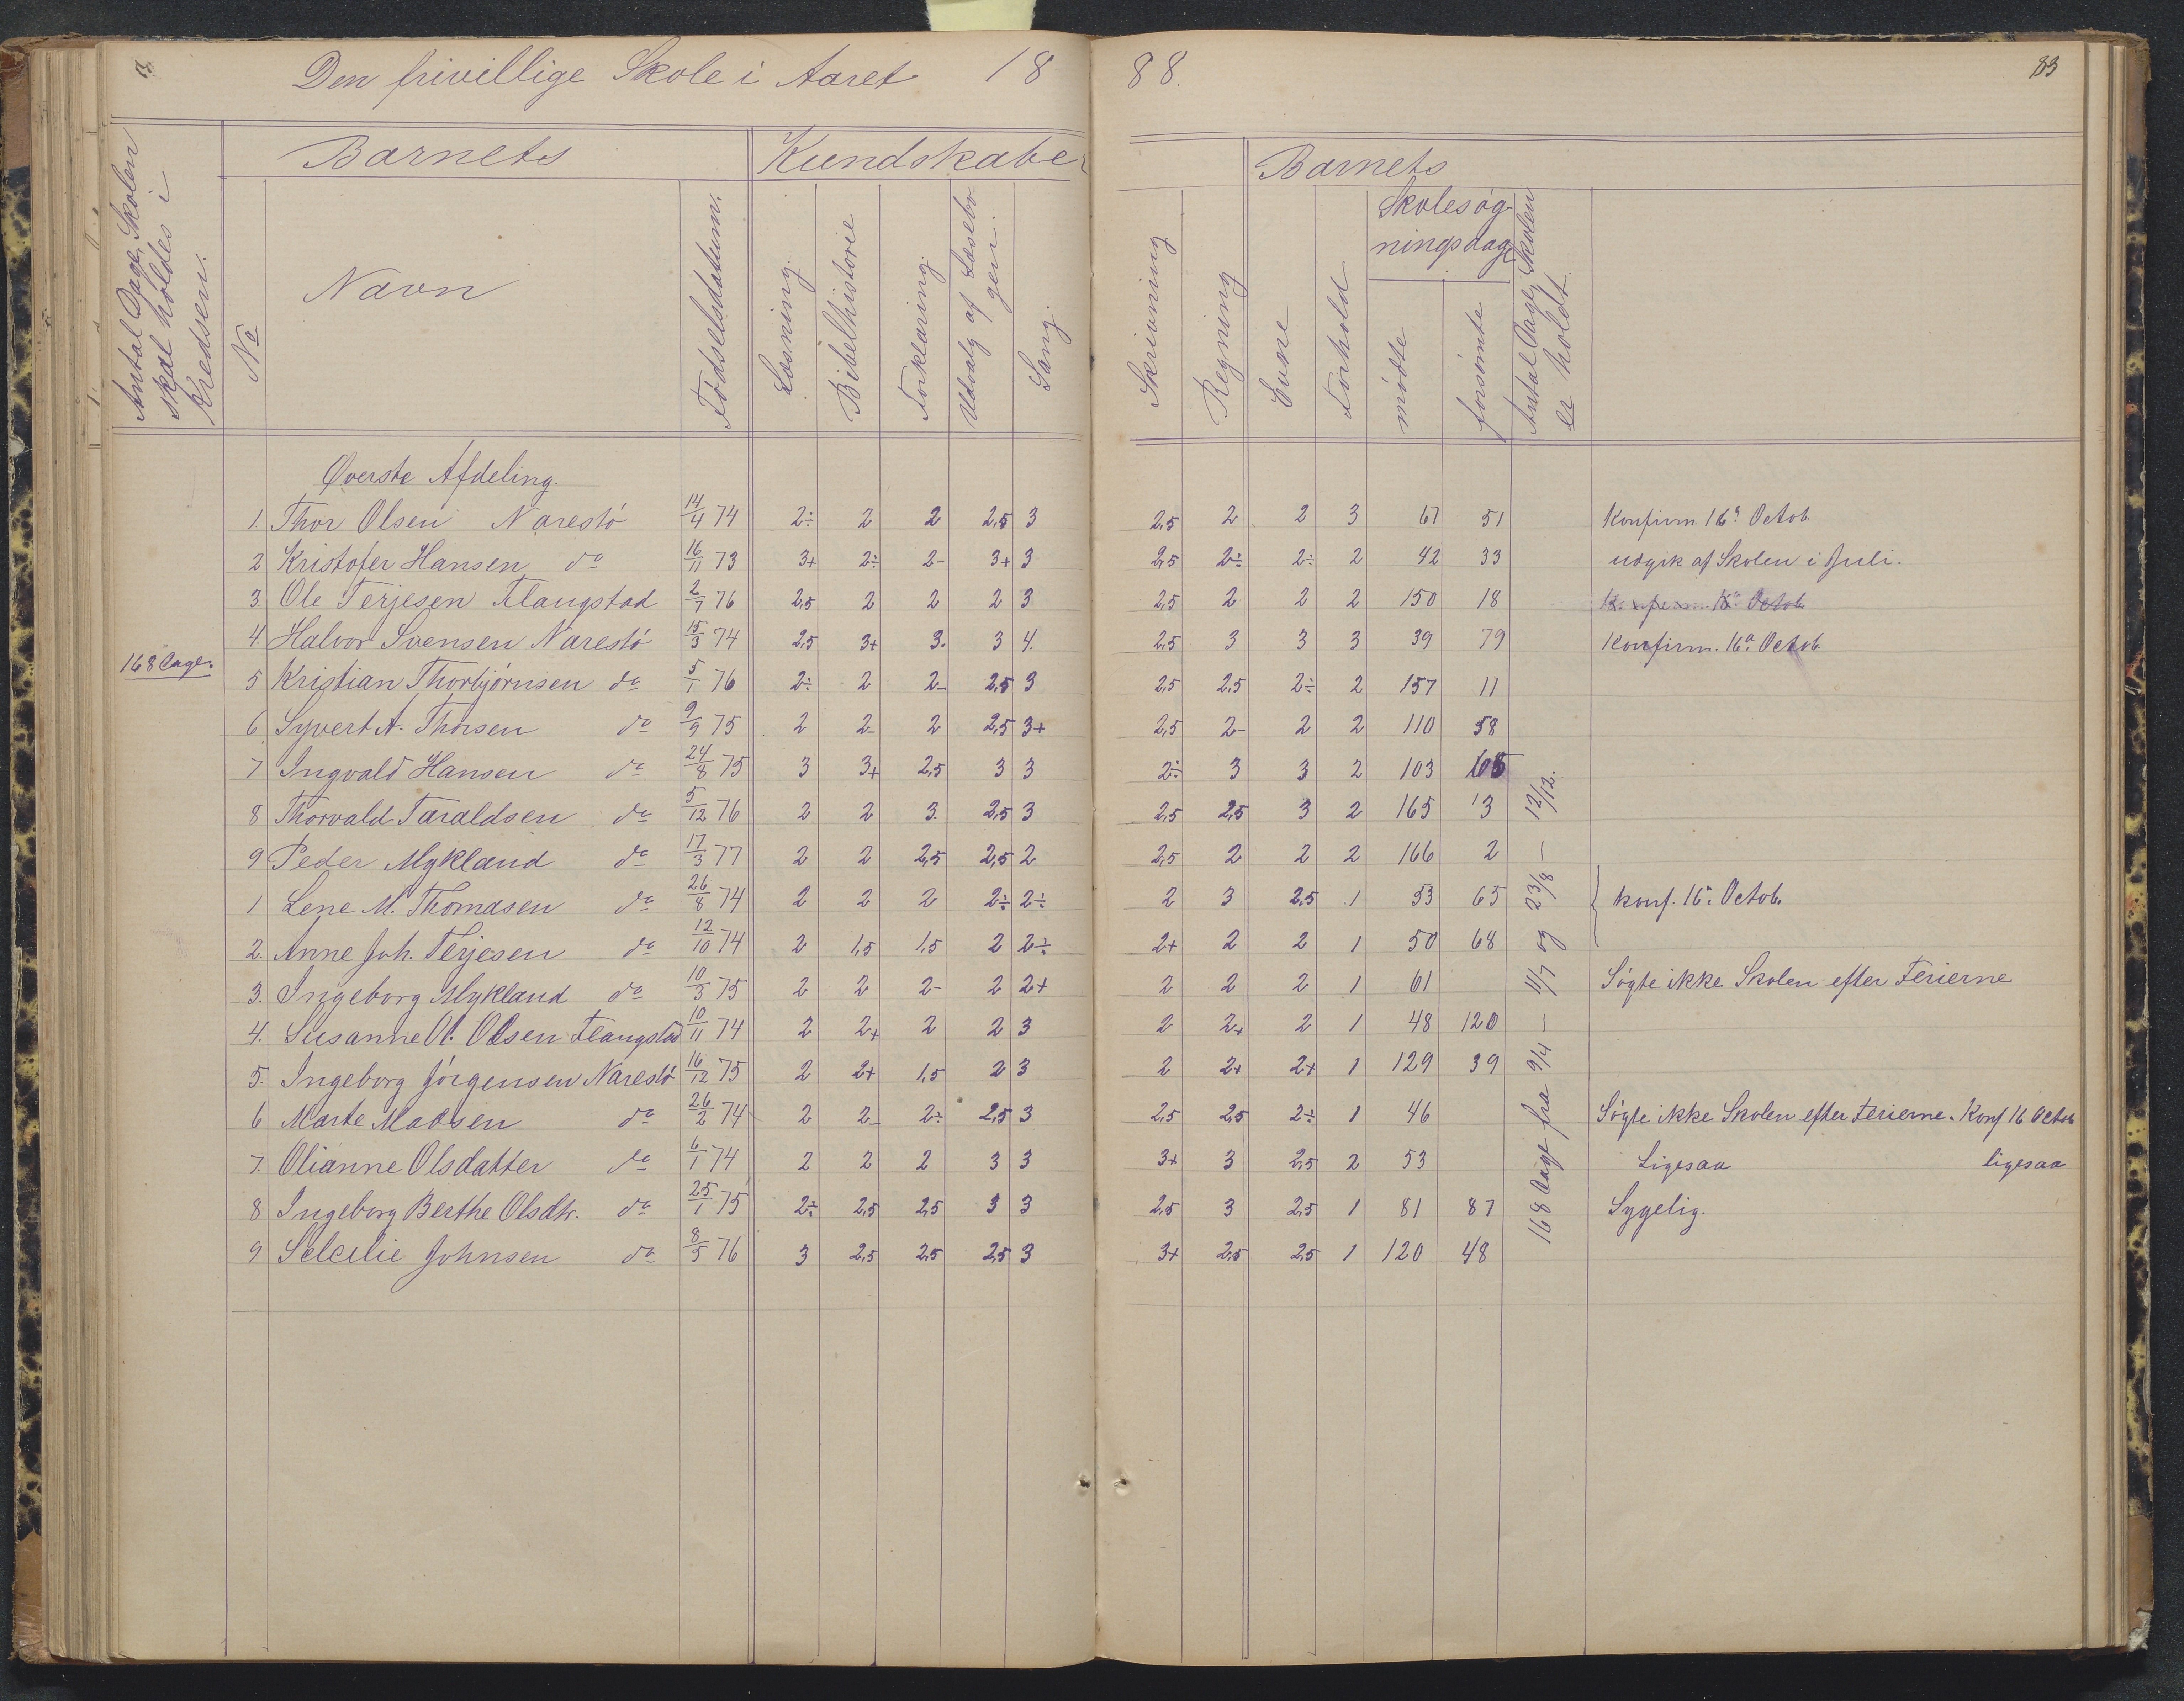 Den frivillige Skole i Aaret 1888.
83
Antal Dage, Skolen skal holdes i Kredsen.
Barnets
Kundskaber
Barnets
No
Navn
Fødselsdatum.
Læsning.
Bibelhistorie
Forklaring.
Udvalg af Læsebogen.
Sang.
Skrivning
Regning
Evne
Forhold
Skolesøgningsdage
mødte
forsømte
Antal Dage, Skolen er holdt.
Øverste Afdeling.
168 Dage.
1. Thor Olsen Narestö 14/4 74 2÷ 2 2 2,5 3 2,5 2 2 3 67 51 Konfirm. 16de Octob.
2 Kristofer Hansen do 16/11 73 3+ 2÷ 2- 3+ 3 2,5 2÷ 2÷ 2 42 33 udgik af Skolen i Juli.
3. Ole Terjesen Flangstad 2/7 76 2,5 2 2 2 3 2,5 2 2 2 150 18
4. Halvor Svensen Narestö 15/3 74 2,5 3+ 3. 3 4. 2,5 3 3 3 39 79 Konfirm. 16de Octob.
5 Kristian Thorbjörnsen do 5/1 76 2÷ 2 2- 2,5 3 2,5 2,5 2÷ 2 157 11
6 Syvert A. Thorsen do 9/9 75 2 2- 2 2,5 3+ 2,5 2- 2 2 110 58
7 Ingvald Hansen do 24/8 75 3 3+ 2,5 3 3 2÷ 3 3 2 103 65
8 Thorvald Taraldsen do 5/12 76 2 2 3. 2,5 3 2,5 2,5 3 2 165 3
9 Peder Mykland do 17/3 77 2 2 2,5 2,5 2 2,5 2 2 2 166 2
1 Lene M. Thomasen do 26/8 74 2 2 2 2÷ 2÷ 2 3 2,5 1 53 65 konf. 16de Octob.
2. Anne Joh. Terjesen do 12/10 74 2 1,5 1,5 2 2÷ 2+ 2 2 1 50 68
3. Ingeborg Mykland do 10/3 75 2 2 2- 2 2+ 2 2 2 1 61 Søgte ikke Skolen efter Ferierne
4. Susanne O. Olsen Flangstad 10/11 74 2 2+ 2 2 3 2 2+ 2 1 48 120
5. Ingeborg Jörgensen Narestö 16/12 75 2 2+ 1,5 2 3 2 2+ 2+ 1 129 39
6 Marte Madsen do 26/2 74 2 2- 2÷ 2,5 3 2,5 2,5 2÷ 1 46 Søgte ikke Skolen efter Ferierne. Konf 16 Octob
7. Olianne Olsdatter do 6/1 74 2 2 2 3 3 3+ 3 2,5 2 53 Ligesaa ligesaa
8 Ingeborg Berthe Olsdtr. do 25/1 75 2÷ 2,5 2,5 3 3 2,5 3 2,5 1 81 87 Sygelig.
9 Selcilie Johnsen do 8/5 76 3 2,5 2,5 2,5 3 3+ 2,5 2,5 1 120 48
168 Dage fra 9/4 – 11/7 og 23/8 – 12/12.